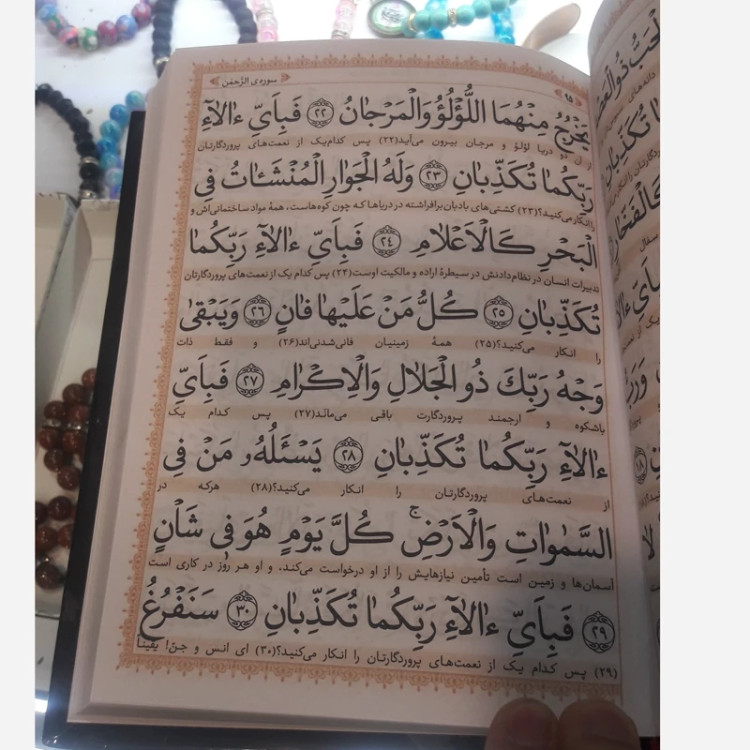 سوره‌ی الرّحمن
۹۵
يَخْرُجُ مِنْهُمَا اللُّؤْلُؤُ وَالْمَرْجٰانُ ﴿٢٢﴾ فَبِاَيِّ ءٰالٰآءِ
دو دریا لؤلؤ و مرجان بیرون می‌آید(۲۲) پس کدام‌یک از نعمت‌های پروردگارتان
رَبِّكُمٰا تُكَذِّبٰانِ ﴿٢٣﴾ وَلَهُ الْجَوٰارِ الْمُنْشَـٰٔاتُ فِي
را انکار می‌کنید؟(۲۳) کشتی‌های بادبان برافراشته در دریاها که چون کوه‌هاست، همهٔ مواد ساختمانی‌اش و
الْبَحْرِ كَالْاَعْلٰامِ ﴿٢٤﴾ فَبِاَيِّ ءٰالٰآءِ رَبِّكُمٰا
تدبیرات انسان در نظام دادنش در سیطرهٔ اراده و مالکیت اوست(۲۴) پس کدام یک از نعمت‌های پروردگارتان
تُكَذِّبٰانِ ﴿٢٥﴾ كُلُّ مَنْ عَلَيْهٰا فٰانٍ ﴿٢٦﴾ وَيَبْقٰى
را انکار می‌کنید؟(۲۵) همهٔ زمینیان فانی‌شدنی‌اند(۲۶) و فقط ذات
وَجْهُ رَبِّكَ ذُو الْجَلٰالِ وَالْاِكْرٰامِ ﴿٢٧﴾ فَبِاَيِّ
باشکوه و ارجمند پروردگارت باقی می‌ماند(۲۷) پس کدام یک
ءٰالٰآءِ رَبِّكُمٰا تُكَذِّبٰانِ ﴿٢٨﴾ يَسْـَٔلُهُۥ مَنْ فِي
از نعمت‌های پروردگارتان را انکار می‌کنید؟(۲۸) هرکه در
السَّمٰوٰاتِ وَالْاَرْضِ ۚ كُلَّ يَوْمٍ هُوَ فِي شَاْنٍ
آسمان‌ها و زمین است تأمین نیازهایش را از او درخواست می‌کند، و او هر روز در کاری است
﴿٢٩﴾ فَبِاَيِّ ءٰالٰآءِ رَبِّكُمٰا تُكَذِّبٰانِ ﴿٣٠﴾ سَنَفْرُغُ
(۲۹) پس کدام یک از نعمت‌های پروردگارتان را انکار می‌کنید؟(۳۰) ای انس و جن! یقیناً